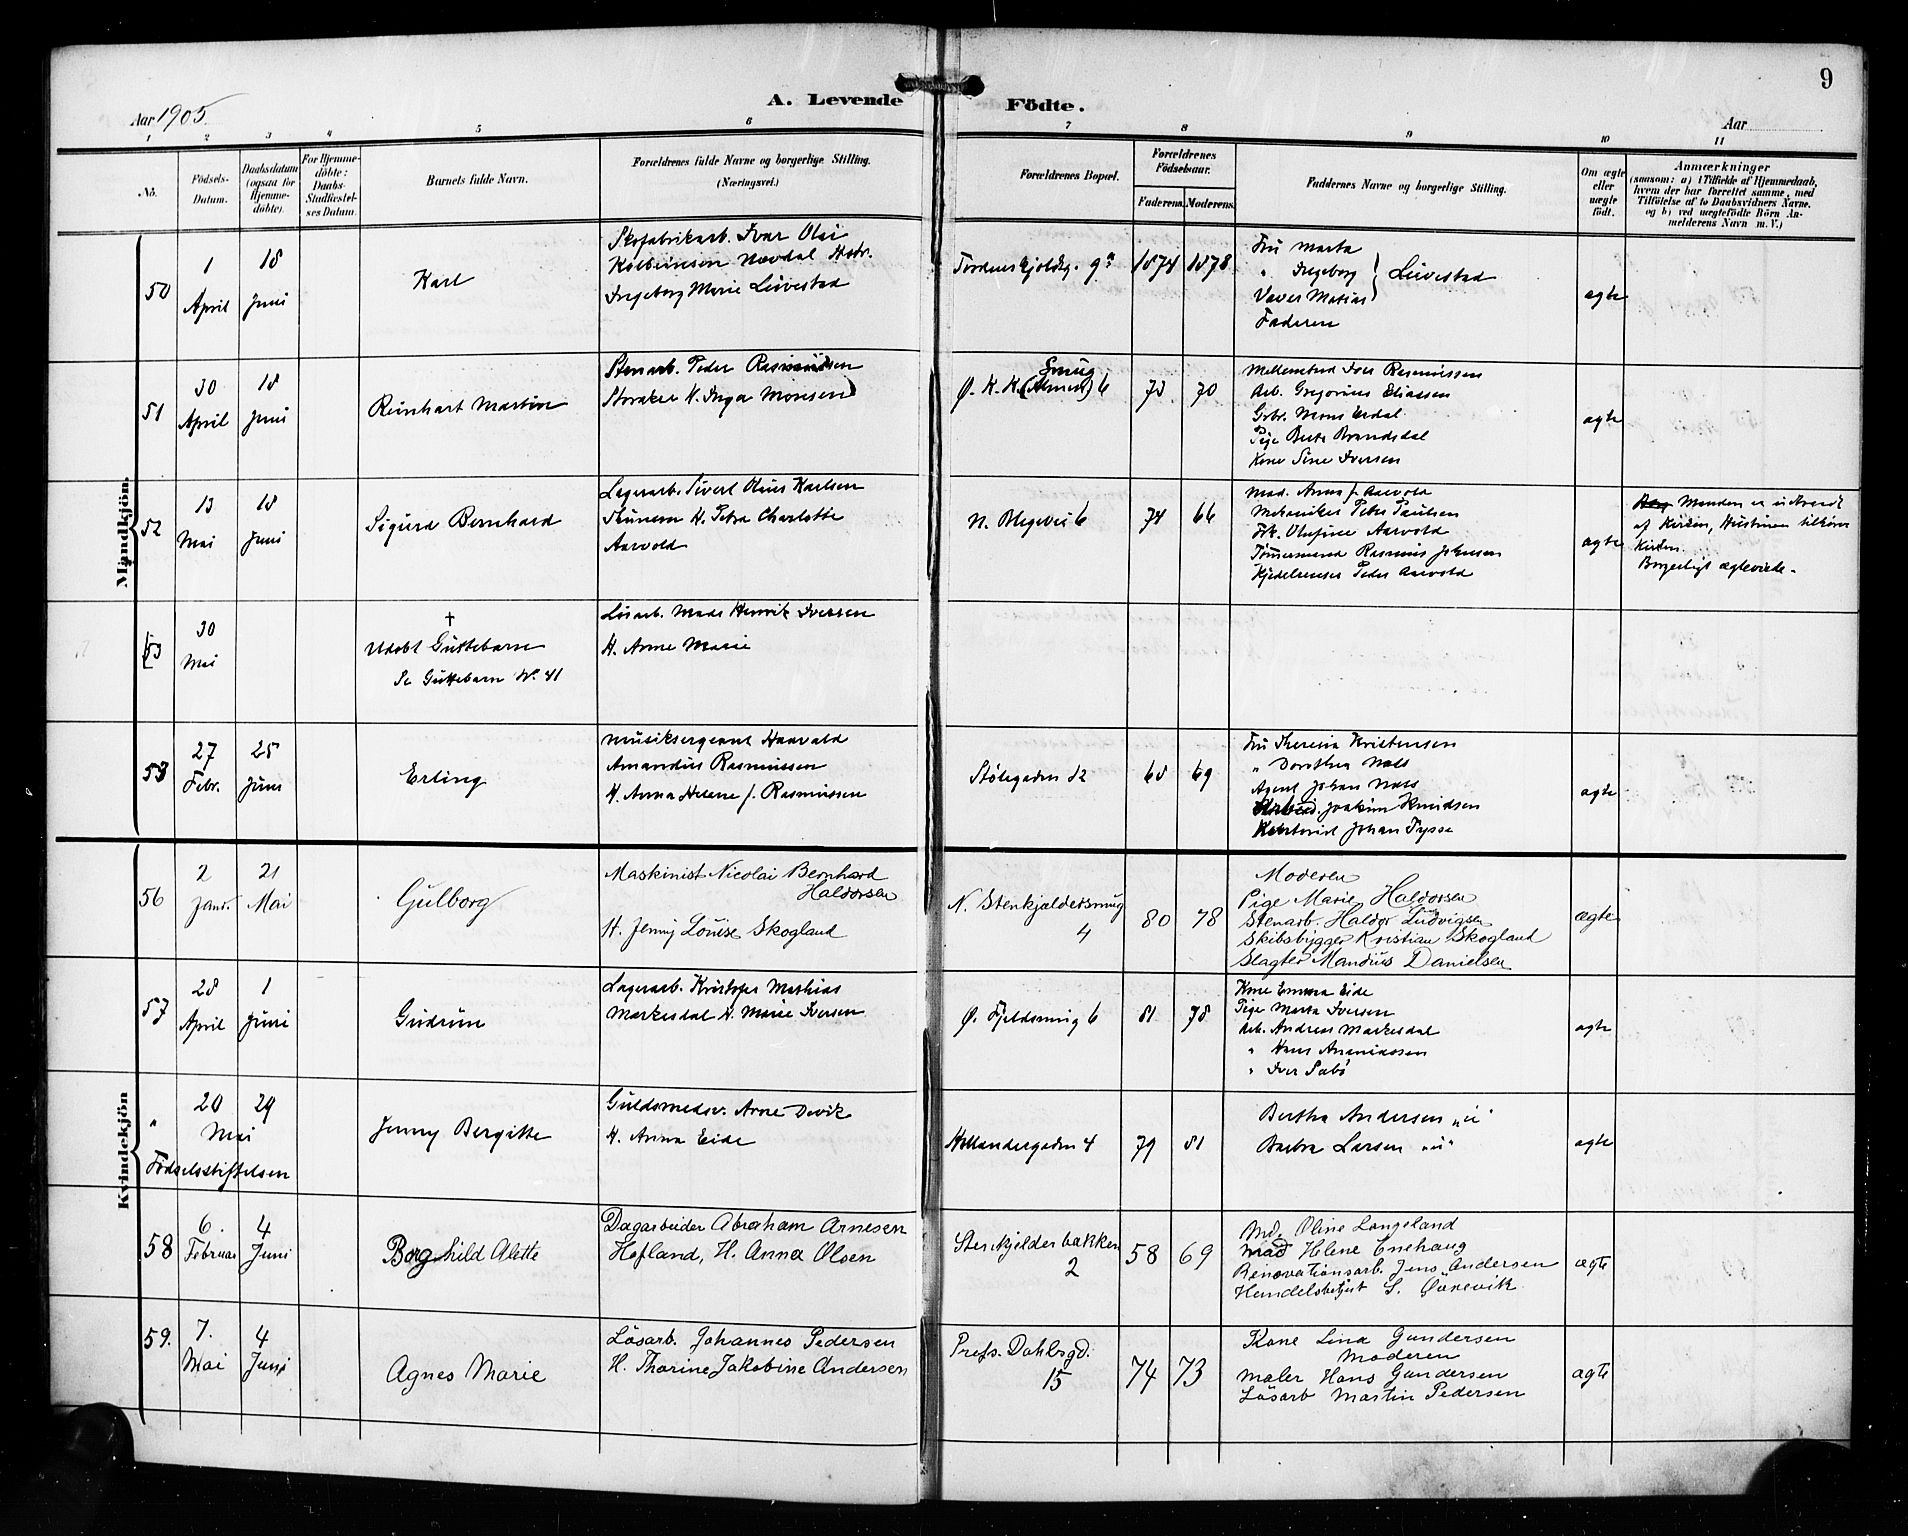 9
A. Levende Födte.
Aar 1905.
Aar
1 2 3 4 5 6 7 8 9 10 11
No.
Födsels-Datum.
Daabsdatum (ogsaa for Hjemmedöbte).
For Hjemmedöbte: Daabs-Stadfæstelses Datum.
Barnets fulde Navn.
Forældrenes fulde Navne og borgerlige Stilling. (Næringsvei.)
Forældrenes Bopæl.
Forældrenes Födselsaar.
Faderens. Moderens.
Faddernes Navne og borgerlige Stilling.
Om ægte eller uægte födt.
Anmærkninger
(saasom: a) i Tilfælde af Hjemmedaab, hvem der har forrettet samme, med Tilföielse af to Daabsvidners Navne. og b) ved uægtefödte Börn Anmelderens Navn m. V.)
Mandkjön.
50
1 April
18 Juni
Karl
Skofabrikarb. Ivar Olai
Kolbeinsen Nævdal Hstr.
Ingeborg Marie Leivestad
Tordenskjoldsg. 9a
1874 1878
Fru Marta
" Ingeborg
Væver Matias
Leivestad
Faderen
ægte
51
30 April
18 Juni
Reinhart Martin
Stenarb. Peder Rasmussen
Storaker H. Inga Monsen
Ø. K. K. (Almen) 6
Smug
73 70
Mellemstad Iver Rasmussen
Arb. Gregorius Eliassen
Gbr. Mons Erdal
Pige Berta Brandsdal
Kone Sine Iversen
ægte
52
13 Mai
18 Juni
Sigurd Bernhard
Lagerarb. Sivert Olius Karlsen
Thunem H. Petra Charlotte
Aarvold
N. Blegevei 6
74 66
Mad. Anna J. Aarvold
Mekaniker Peter Paulsen
Frk. Olufine Aarvold
Tømmermand Rasmus Johnsen
Kjedelrenser Peder Aarvold
ægte
Manden er udtraadt
af Kirken, Hustruen tilhører
Kirken.
Borgerligt ægteviede.
53
30 Mai
†
Udøbt Guttebarn
Se Guttebarn N. 41
Løsarb. Mads Henrik Iversen
H. Anne Marie
53
27 Febr.
25 Juni
Erling
Musiksergeant Haavald
Amandus Rasmussen
H. Anna Helene f. Rasmussen
Stølegaden 12
68 69
Fru Theresia Kristensen
" Dorothea Næss
Agent Johan Næss
Joakim Knudsen
Johan Tysse
ægte
Kvindekjön
56
2 Janr.
21 Mai
Gulborg
Maskinist Nicolai Bernhard
Haldorsen
H. Jenny Louise Skogland
N. Stenkjældersmug
4
80 78
Moderen
Pige Marie Haldorsen
Stenarb. Haldor Ludvigsen
Skibsbygger Kristian Skogland
Slagter Mandius Danielsen
ægte
57
28 April
1 Juni
Gudrun
Lagerarb. Kristofer Mathias
Markesdal H. Marie Iversen
Ø. Fjeldsmug 6
81 78
Kone Emma Eide
Pige Marta Iversen
Arb. Andreas Markesdal
" Hans Ananiassen
" Iver Sabø
ægte
"
20 29
Mai
Fødselsstiftelsen
Jenny Bergitte
Guldsmedsv. Arne Devik
H. Anna Eide
Hollændergaden 4
79 81
Bertha Andersen "u"
Barbra Larsen "u"
ægte
58
6. Februar
4 Juni
Borghild Alette
Dagarbeider Abraham Arnesen
Hefland, H. Anna Olsen
Stenkjelderbakken
2
58 69
Md. Oline Langeland
Mad Helene Enehaug
Renovationsarb. Jens Andersen
Handelsbetjent S. Øvrevik
ægte
59.
7. Mai
4 Juni
Agnes Marie
Løsarb. Johannes Pedersen
H. Tharine Jakobine Andersen
Profs. Dahlsgd.
15
74 73
Kone Lina Gundersen
Moderen
Maler Hans Gundersen
Løsarb Martin Pedersen
ægte